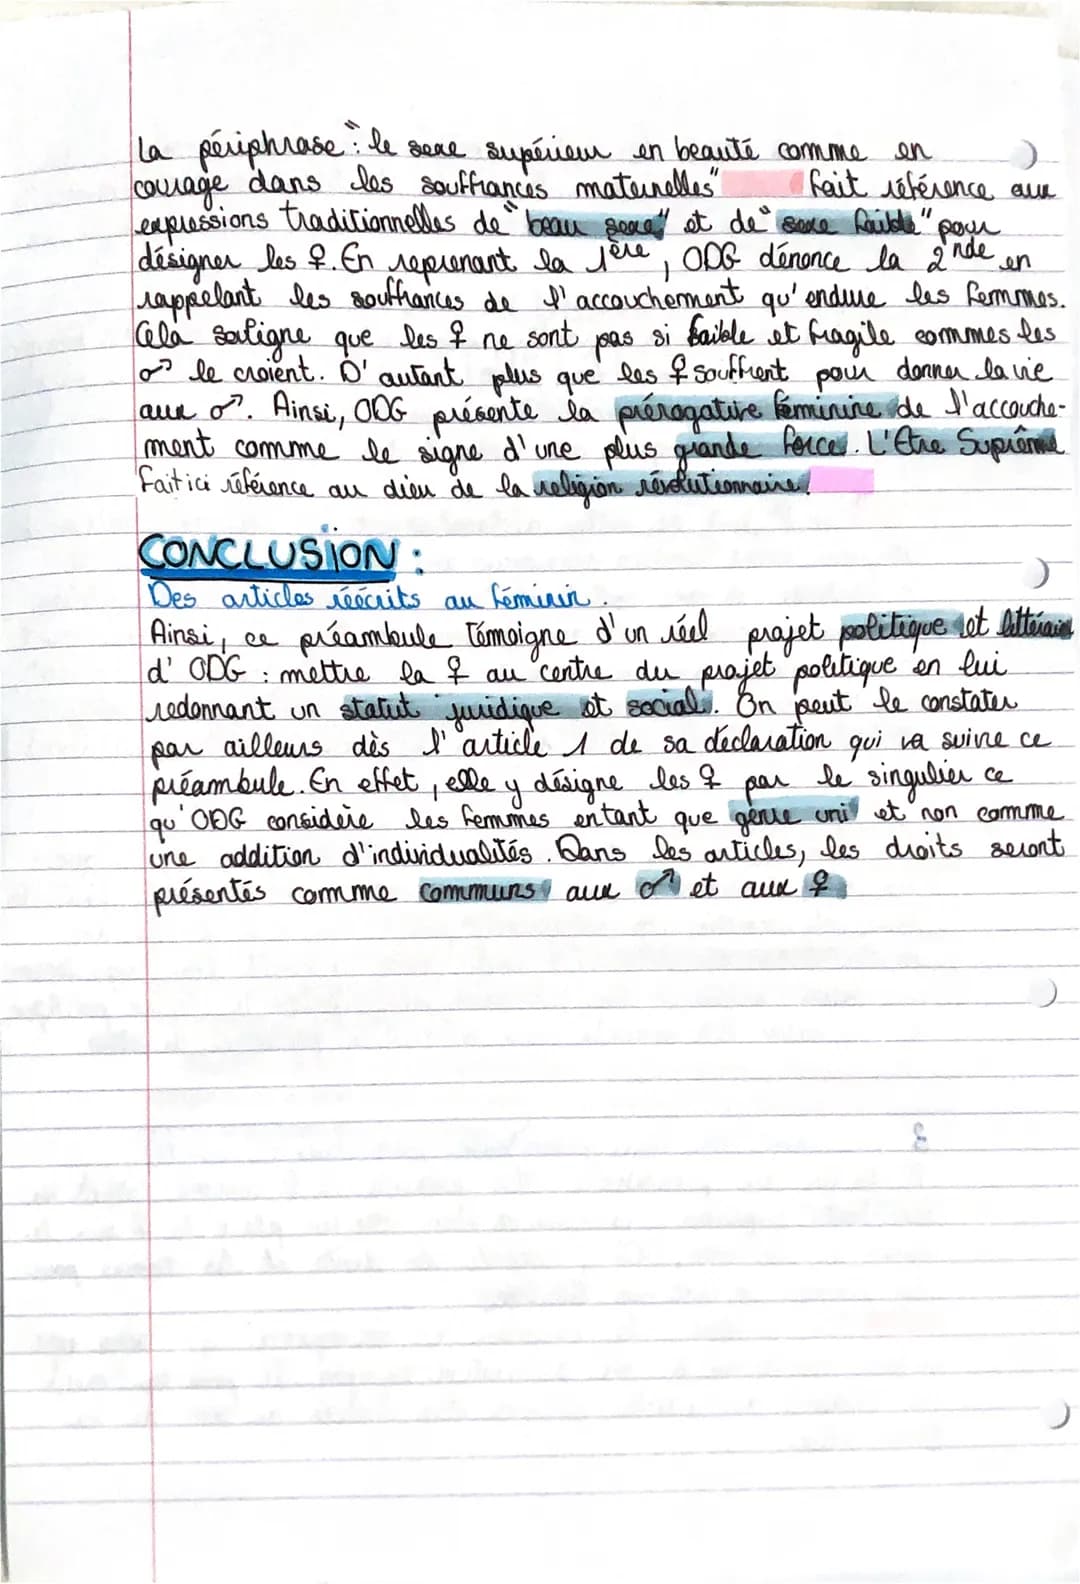 La périphrase : "le sexe supérieur en beauté comme en
courage dans les souffrances maternelles" fait référence aux
expressions traditionnelles de "beau sexe" et de "sexe faible" pour
désigner les ♀. En reprenant la 1ère, ODG dénonce la 2nde en
rappelant les souffrances de l'accouchement qu'endure les femmes.
Cela souligne que les ♀ ne sont pas si faible et fragile commes les
♂ le croient. D'autant plus que les ♀ souffrent pour donner la vie
aux ♂. Ainsi, ODG présente la prérogative féminine de l'accouche-
ment comme le signe d'une plus grande force. L'Etre Suprême
fait ici référence au dieu de la religion révolutionnaire.
CONCLUSION :
Des articles réécrits au féminin.
Ainsi, ce préambule témoigne d'un réel projet politique et littéraire
d'ODG : mettre la ♀ au centre du projet politique en lui
redonnant un statut juridique et social. On peut le constater
par ailleurs dès l'article 1 de sa déclaration qui va suivre ce
préambule. En effet, elle y désigne les ♀ par le singulier ce
qu'ODG considère les femmes entant que génie uni et non comme
une addition d'individualités. Dans les articles, les droits seront
présentés comme communs aux ♂ et aux ♀